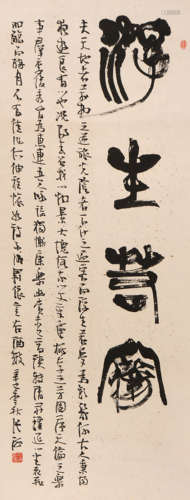 浮生若夢
夫天地者万物之逆旅光陰者百代之過客而浮生若夢為歡幾何古人秉燭
夜遊良有以也況陽春召我以煙景大塊假我以文章會桃李之芳園序天倫之樂
事群季俊秀皆為惠連吾人詠歌獨慚康樂幽賞未已高談轉清開瓊筵以坐花飛
羽觴而醉月不有佳作何伸雅懷如詩不成罰依金谷酒數